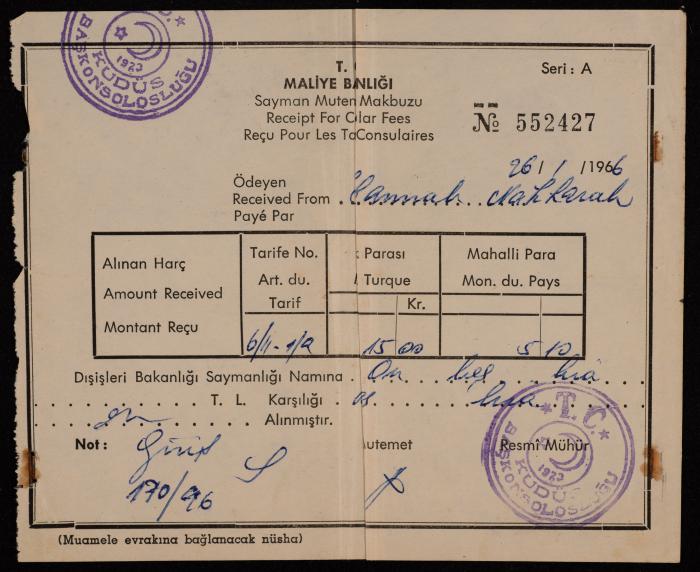 T.C.
KUDÜS
BAŞKONSOLOSLUĞU
1923
T.
MALİYE BNLIĞI
Seri: A
Sayman MutenMakbuzu
Receipt For Clar Fees
Reçu Pour Les TaConsulaires
№ 552427
26/1/1966
Ödeyen
Received From Hannah Nakkarah
Payé Par
Alınan Harç
Amount Received
Montant Reçu
Tarife No.
Art. du.
Tarif
Parası
Turque
Kr.
Mahalli Para
Mon. du. Pays
6/II-1/a 15 00 5 10
Dışişleri Bakanlığı Saymanlığı Namına On beş lira
T. L. Karşılığı
on Alınmıştır.
Not: utemet Resmî Mühür
170/96
T.C.
1923
KUDÜS
BAŞKONSOLOSLUĞU
(Muamele evrakına bağlanacak nüsha)